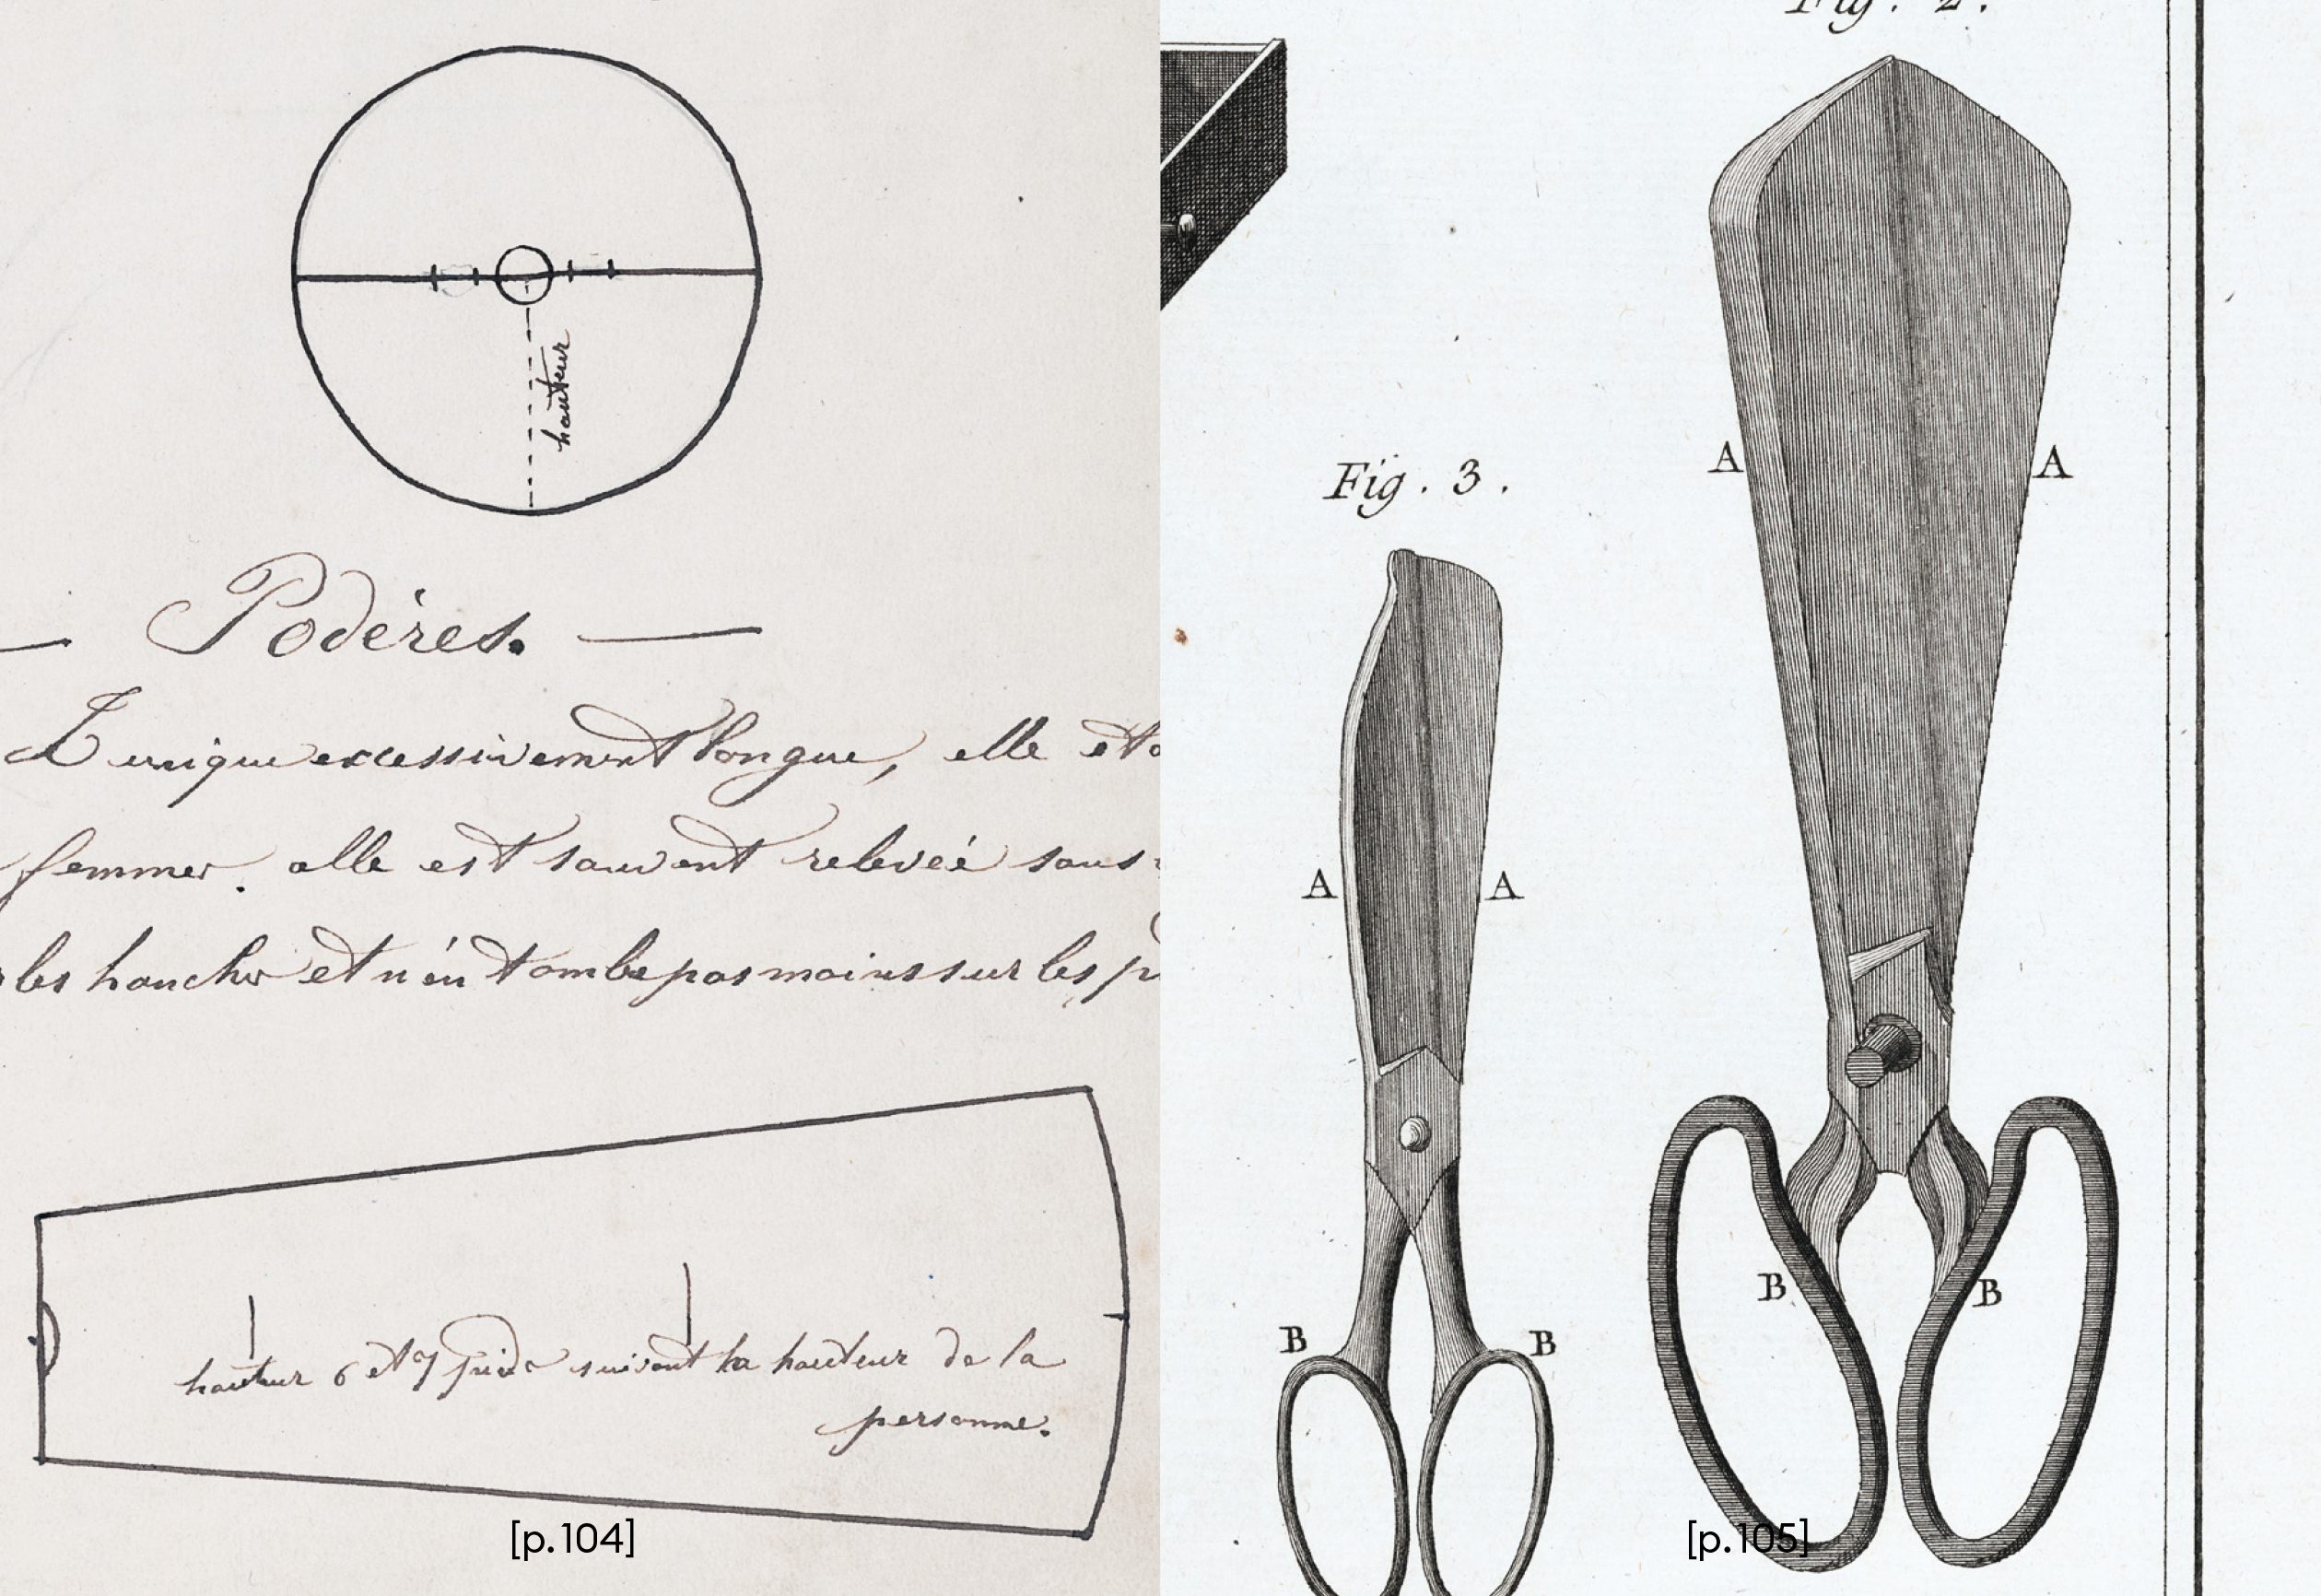 hauteur
— Poderes. —
Tunique excessivement longue, elle eto
femmes. elle est souvent relevée sous
les hanches et n'en tombe pas moins sur les p
hauteur 6 et 7 pieds suivant la hauteur de la
personne.
[p.104]
Fig. 2.
A A
Fig. 3.
A A
B B
B B
[p.105]